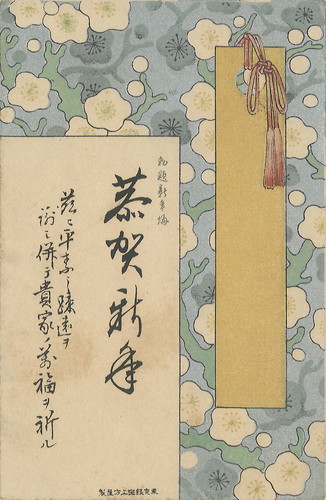 勅題新年梅
恭賀新年
茲ニ平素ノ疎遠ヲ
謝シ併テ貴家ノ萬福ヲ祈ル
東京銀座上方屋製